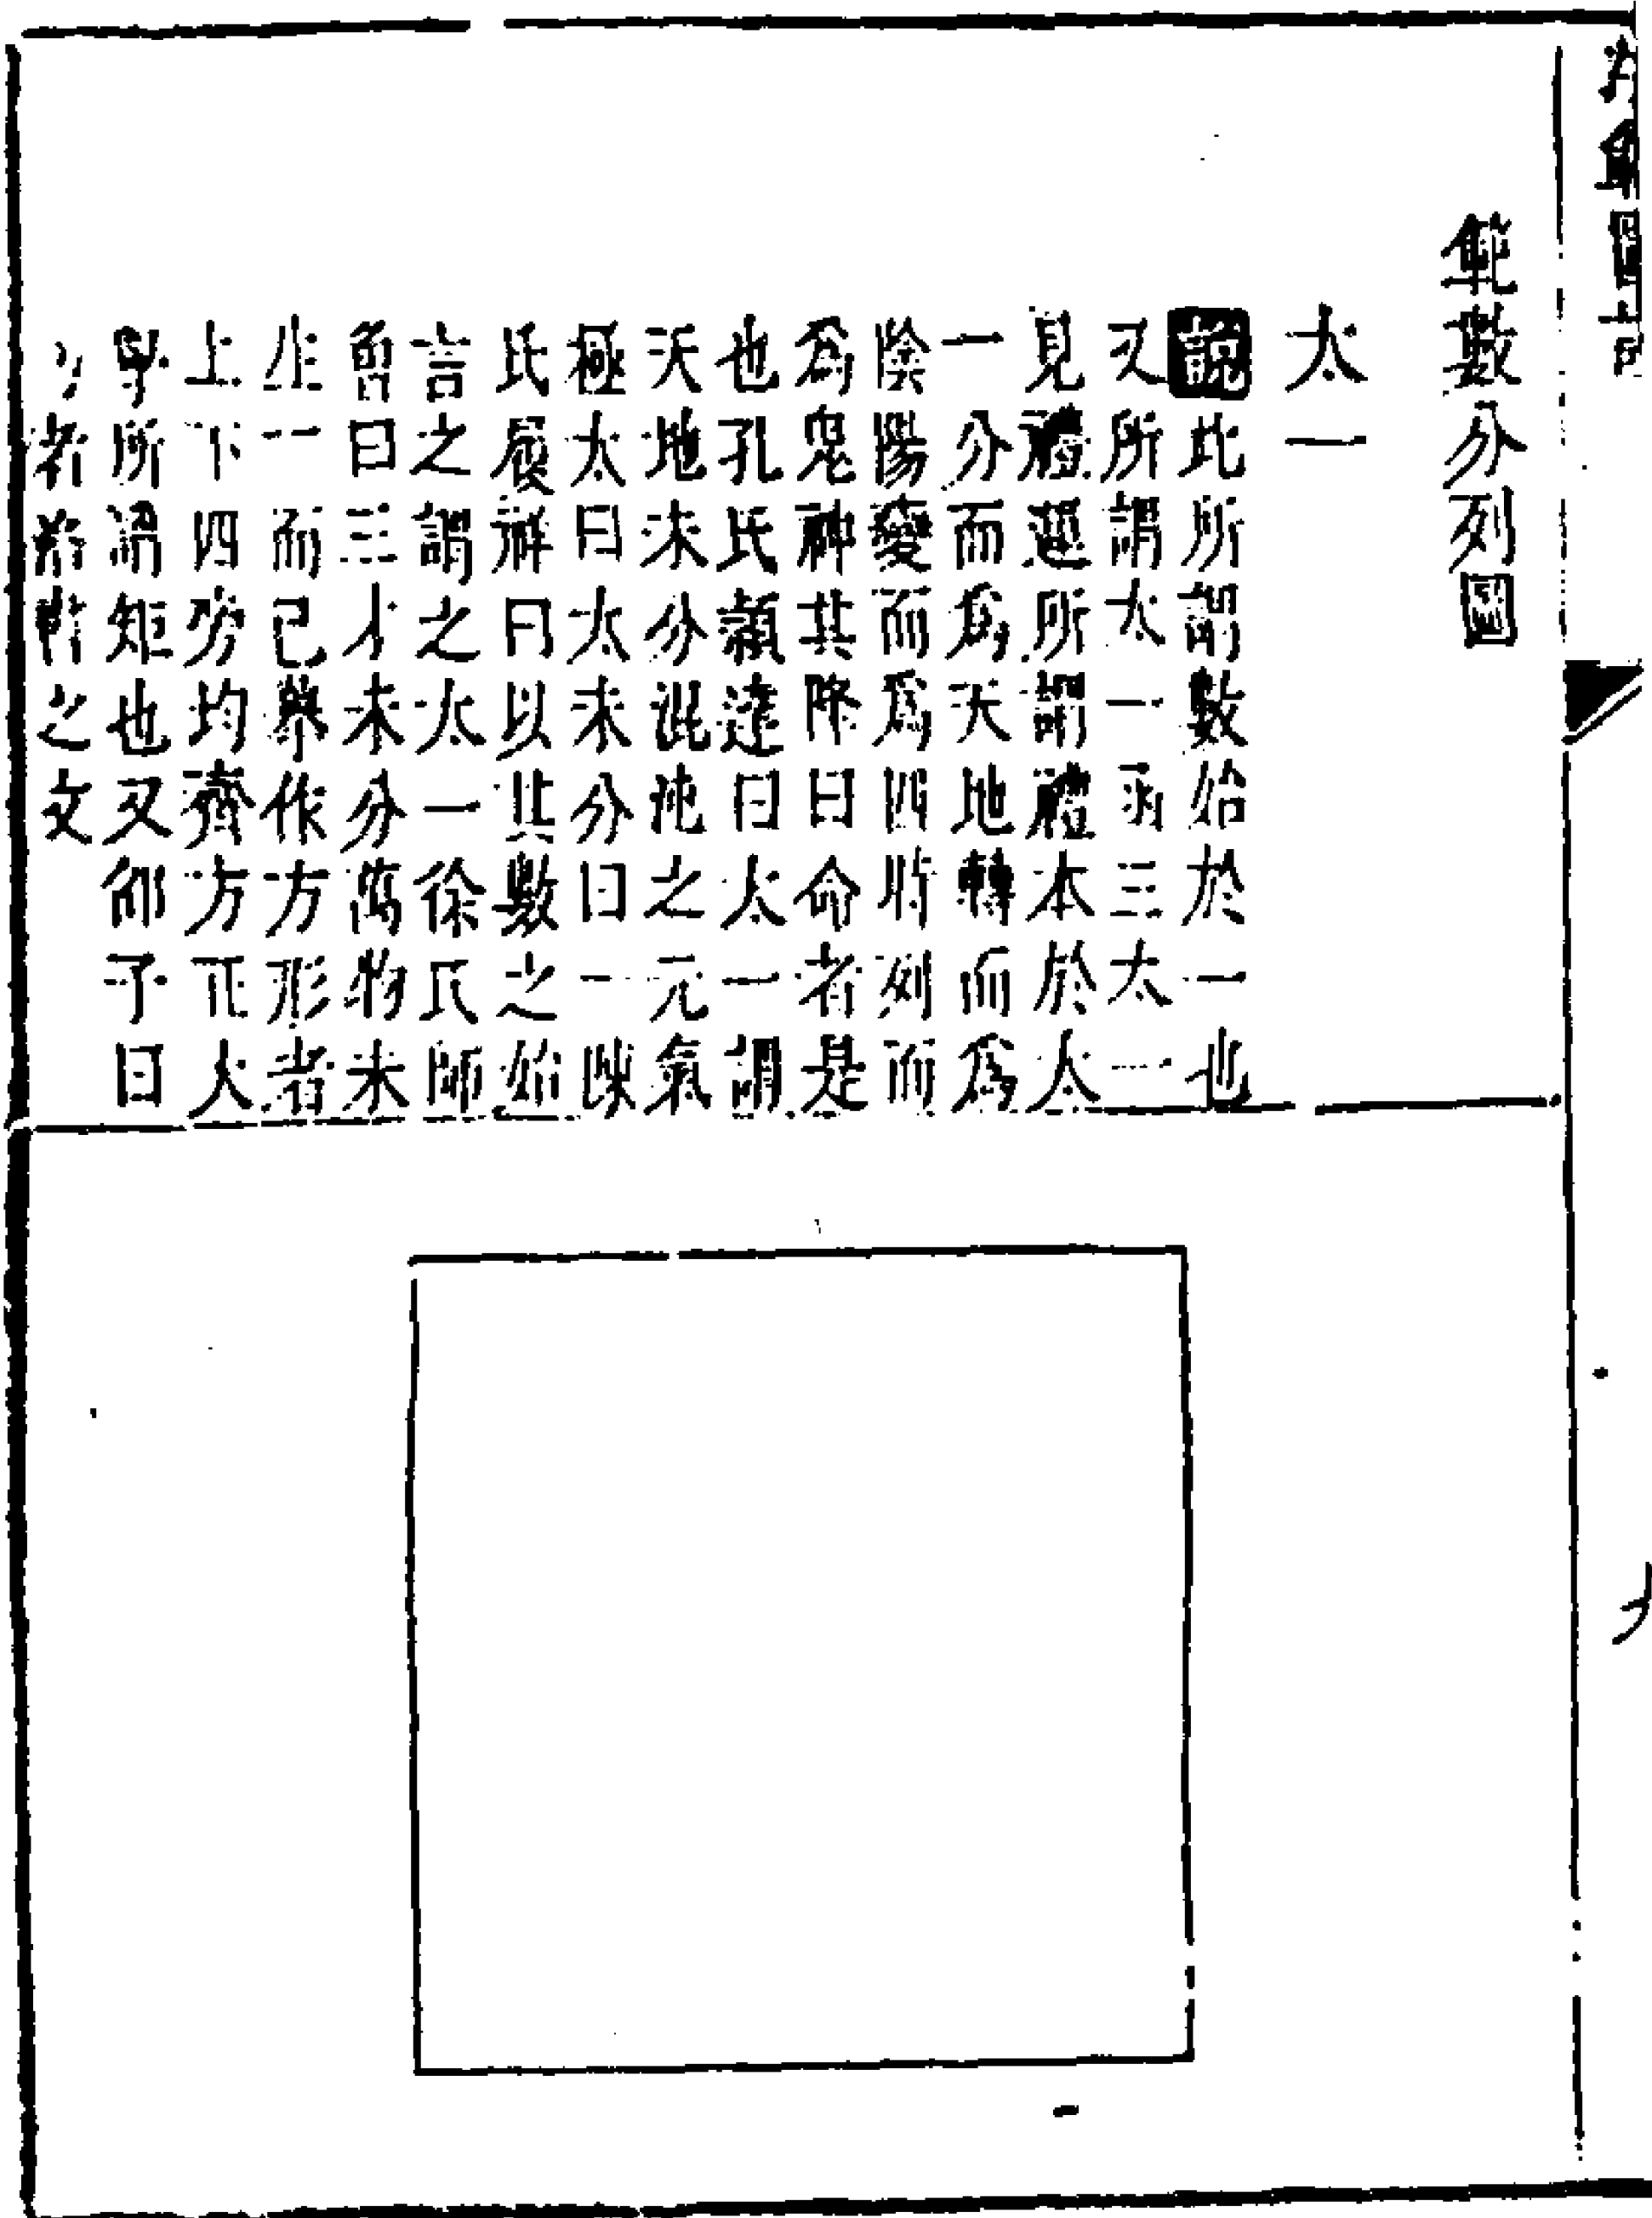 範數分列圖
太一
謹此所謂數始於一也
又所謂太一函三太一
見禮運所謂禮本於太
一分而爲天地轉而爲
陰陽變而爲四時列而
爲鬼神其降曰命者是
也孔氏頴達曰太一謂
天地未分混沌之元氣
極太曰太未分曰一陳
氏履祥曰以其數之始
言之謂之太一徐氏師
曾曰三才未分萬物未
生一而已蔡作方形者
上下四旁均齊方正大
學所謂矩也又邵子曰
方者 之文